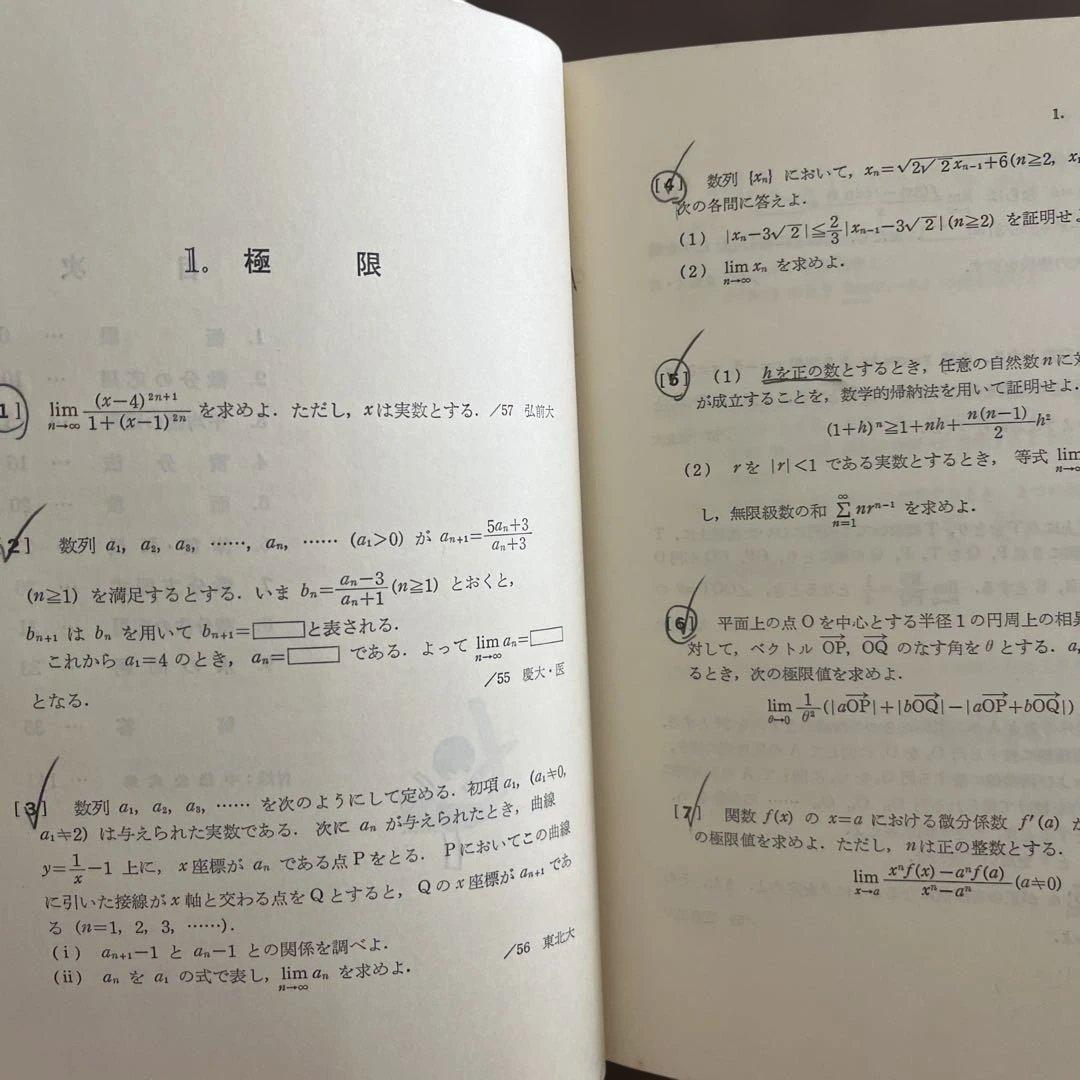 1。極限
[1] lim_{n→∞} (x−4)^{2n+1} / 1+(x−1)^{2n} を求めよ．ただし，xは実数とする．/57 弘前大
[2] 数列 a₁, a₂, a₃, ……, aₙ, …… (a₁>0) が aₙ₊₁= (5aₙ+3)/(aₙ+3)
(n≧1) を満足するとする．いま bₙ= (aₙ−3)/(aₙ+1) (n≧1) とおくと，
bₙ₊₁ は bₙ を用いて bₙ₊₁=□と表される．
これから a₁=4 のとき，aₙ=□ である．よって lim_{n→∞} aₙ=□
/55 慶大・医
となる．
[3] 数列 a₁, a₂, a₃, …… を次のようにして定める．初項 a₁, (a₁≠0,
a₁≠2) は与えられた実数である．次に aₙ が与えられたとき，曲線
y=1/x−1 上に，x座標が aₙ である点Pをとる．Pにおいてこの曲線
に引いた接線が x軸と交わる点をQとすると，Qの x座標が aₙ₊₁ であ
る (n=1, 2, 3, ……)．
(i) aₙ₊₁−1 と aₙ−1 との関係を調べよ．
/56 東北大
(ii) aₙ を a₁ の式で表し，lim_{n→∞} aₙ を求めよ．
1.
[4] 数列 {xₙ} において，xₙ=√(2√2 xₙ₋₁+6) (n≧2,
次の各問に答えよ．
(1) |xₙ−3√2|≦2/3|xₙ₋₁−3√2| (n≧2) を証明せよ
(2) lim_{n→∞} xₙ を求めよ．
[5] (1) hを正の数とするとき，任意の自然数nに対
が成立することを，数学的帰納法を用いて証明せよ．
(1+h)ⁿ≧1+nh+ n(n−1)/2 h²
(2) rを |r|<1 である実数とするとき，等式 lim_{n→∞}
し，無限級数の和 Σ_{n=1}^{∞} nrⁿ⁻¹ を求めよ．
[6] 平面上の点Oを中心とする半径1の円周上の相異
対して，ベクトル OP→, OQ→ のなす角をθとする．a,
るとき，次の極限値を求めよ．
lim_{θ→0} 1/θ² (|aOP→|+|bOQ→|−|aOP→+bOQ→|)
[7] 関数 f(x) の x=a における微分係数 f′(a) が
の極限値を求めよ．ただし，nは正の整数とする．
lim_{x→a} (xⁿf(x)−aⁿf(a))/(xⁿ−aⁿ) (a≠0)